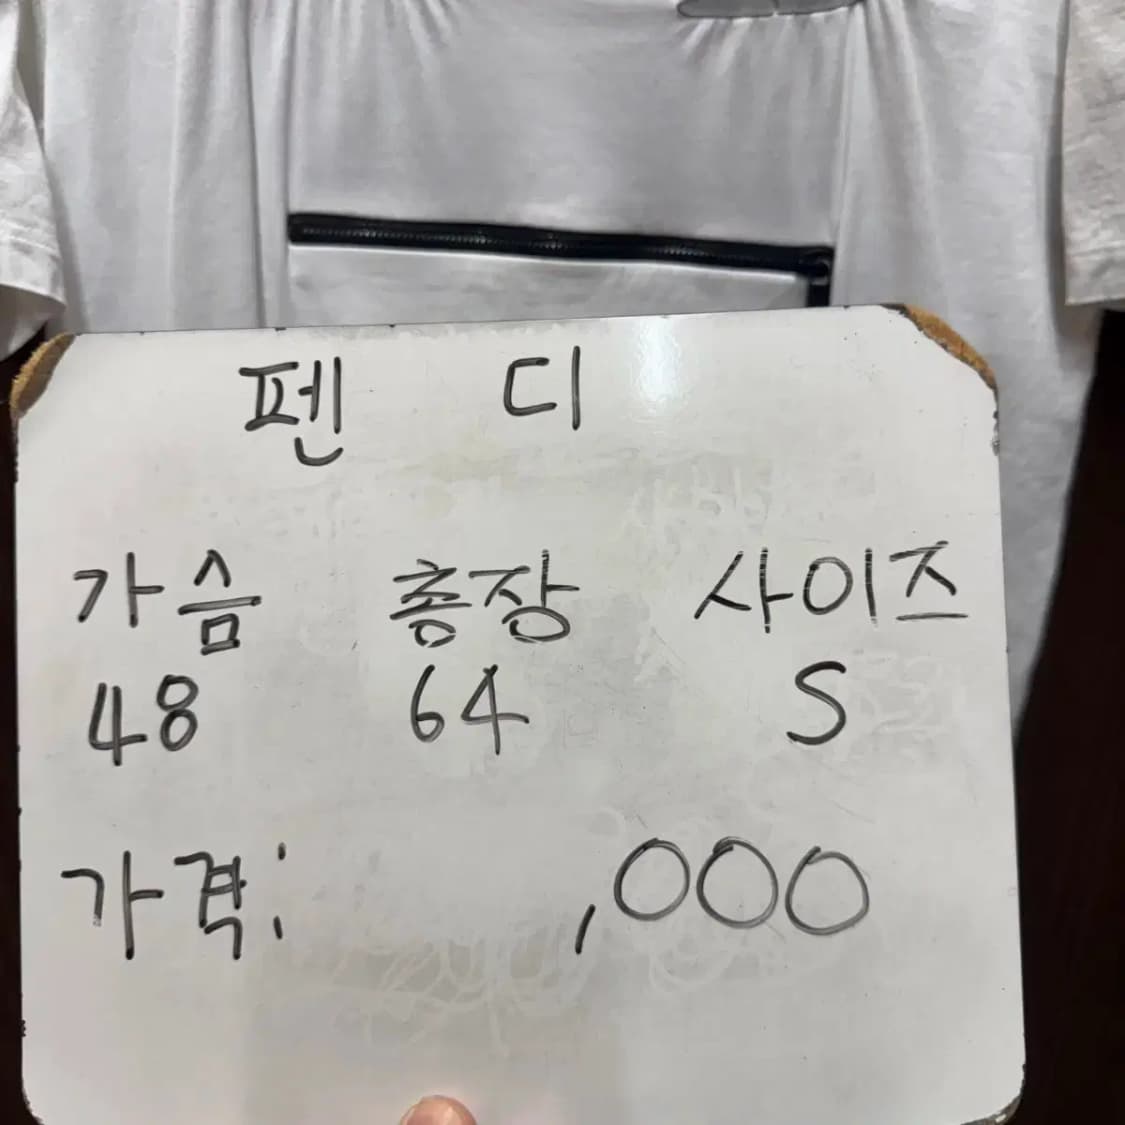 펜 디
가슴 총장 사이즈
48 64 S
가격: ,000